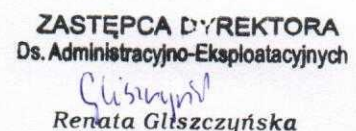 ZASTĘPCA DYREKTORA
Ds. Administracyjno-Eksploatacyjnych
Gliszczyńs
Renata Gliszczyńska